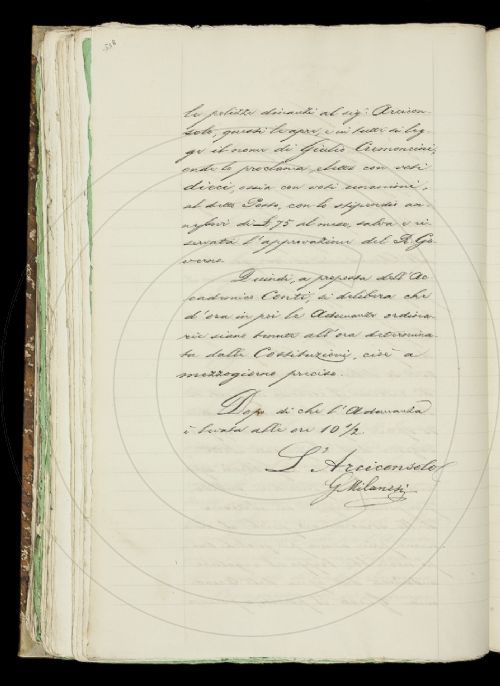 518
le polizze dinanzi al sig: Arcicon-
solo, questi le apre, e in tutte si leg-
ge il nome di Giulio Cremoncini;
onde lo proclama eletto con voti
dieci, ossia con voti unanimi,
al detto Posto, con lo stipendio an-
nesso di L. 75 al mese, salva e ri-
servata l'approvazione del R. Go-
verno.
Quindi, a proposta dell'Ac-
cademico Conti, si delibera che
d'ora in poi le Adunanze ordina-
rie siano tenute all'ora determina-
ta dalle Costituzioni, cioè a
mezzogiorno preciso.
Dopo di che l'Adunanza
è levata alle ore 10 1/2.
L'Arciconsolo
G. Milanesi